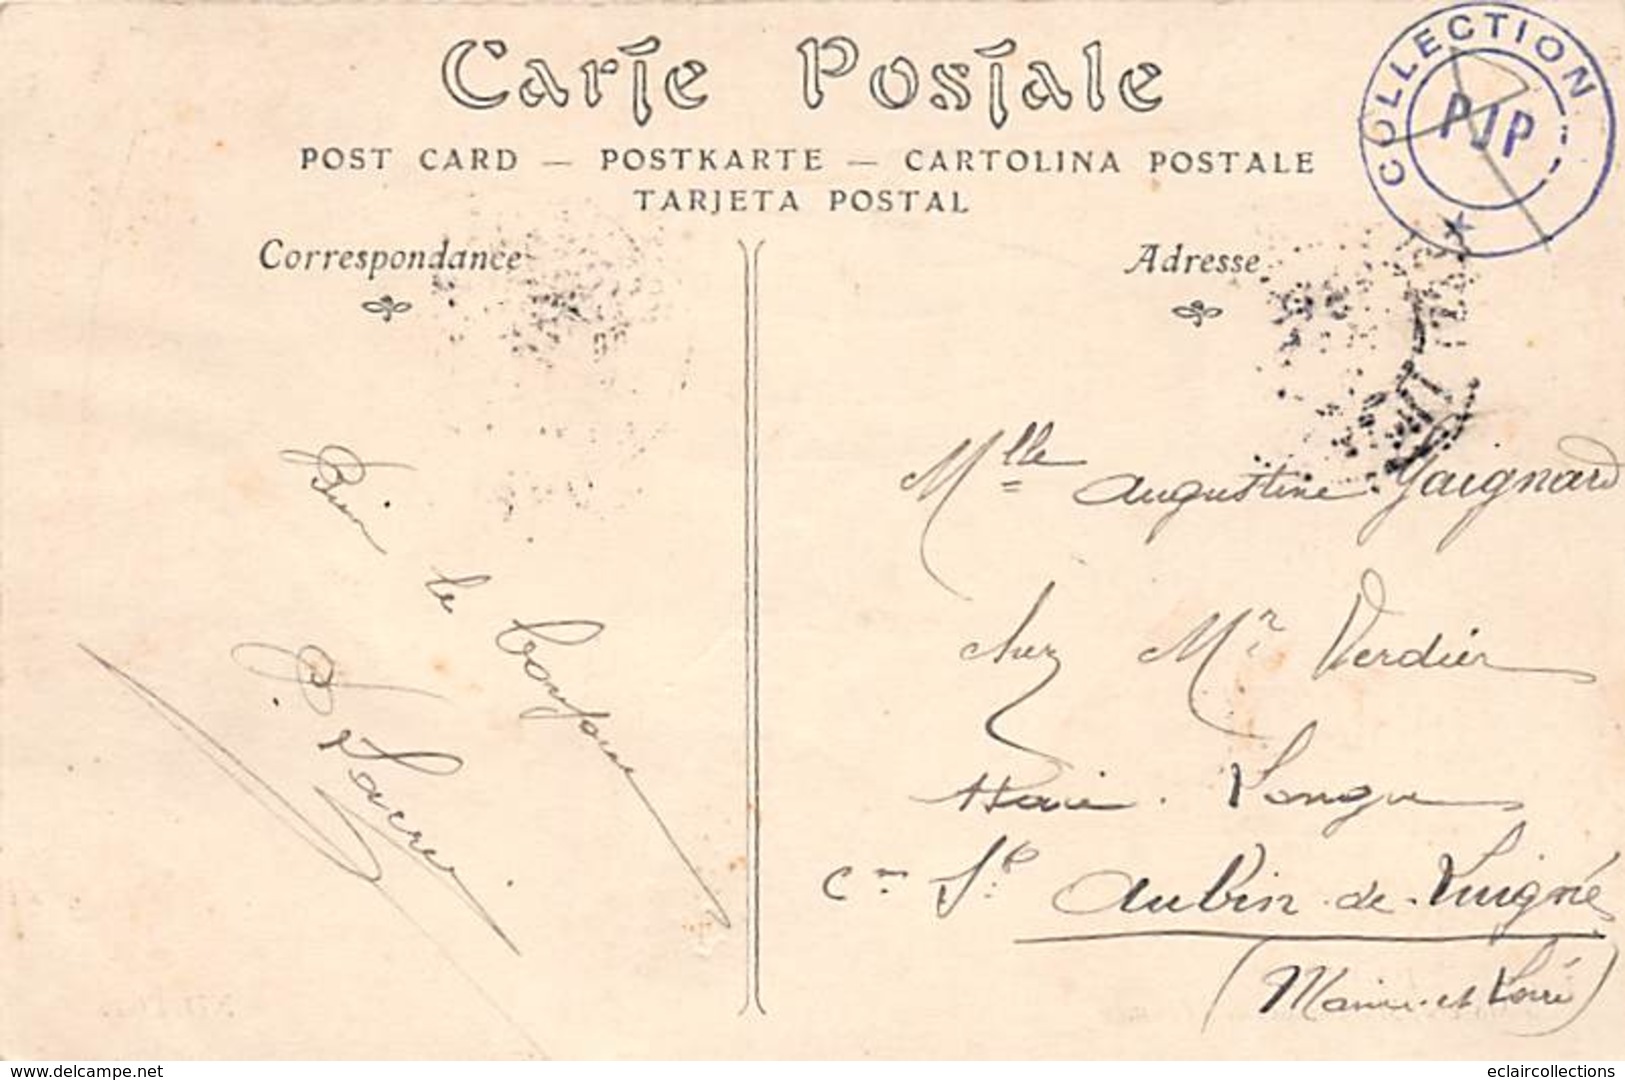 Carte Postale
COLLECTION
PJP
POST CARD — POSTKARTE — CARTOLINA POSTALE
TARJETA POSTAL
Correspondance
Adresse
Bien le bonjour
Mlle Augustine Gaignard
chez Mr Verdier
Haie Longue
Cne St Aubin-de-Luigné
(Maine-et-Loire)
www.delcampe.net
eclaircollections